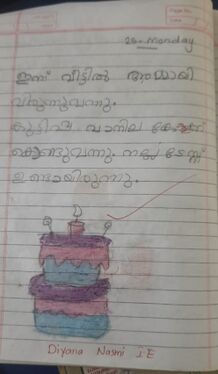 25-Monday
ഇന്ന് വീട്ടിൽ അമ്മായി
വിരുന്നുവന്നു.
കൂട്ടിന് വാനില കേക്ക്
കൊണ്ടുവന്നു. നല്ല ടേസ്റ്റ്
ഉണ്ടായിരുന്നു.
Diyana Nasmi J.E